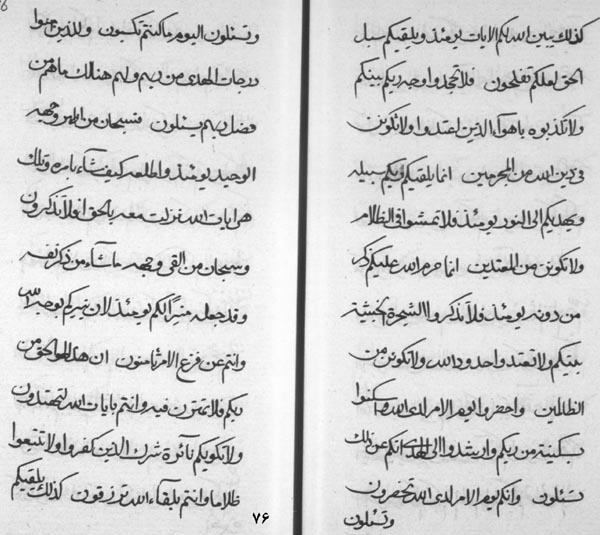 كذلك يبين الله لكم الايات يومئذ ويلقيكم سبل
الحق لعلكم تفلحون فلا تجحدوا وجه ربكم بينكم
ولا تكذبوه باهواء الذين اعتدوا ولا تكونن
في دين الله من المجرمين انما يلقيكم ربكم سبيله
ويهديكم الى النور يومئذ فلا تمشوا في الظلام
ولا تكونن من المعتدين انما حرم الله عليكم ذكر
من دونه يومئذ فلا تذكروا الشجرة الخبيثة
بينكم ولا تعتدوا حدود الله ولا تكونن من
الظالمين واحضروا اليوم الامر لدى الله واسكنوا
بسكينة من ربكم وارشدوا الى الهدى انكم عن ذلك
تسئلون وانكم يوم الامر لدى الله تحضرون
وتسئلون
وتسئلون اليوم ما كنتم تكسبون وللذين امنوا
درجات الهدى من ربهم ولهم هنالك ما هم من
فضل ربهم يسئلون فسبحان من اظهر وجهه
الوحيد يومئذ واطلعه كيف شاء بامره وتلك
هي ايات الله نزلت معه بالحق افلا تذكرون
وسبحان من القى وجهه ما شاء من ذكر نفسه
وقد جعله منيرا لكم يومئذ لان نيركم بوجه الله
وانتم عن فزع الامر تامنون ان هذا لهو الحق من
ربكم فلا تمترن فيه وانتم بايات الله لتهتدون
ولا تكويكم نائرة شرك الذين كفروا ولا تتبعوا
ظلاما وانتم بلقاء الله ترزقون كذلك يلقيكم
۷۶